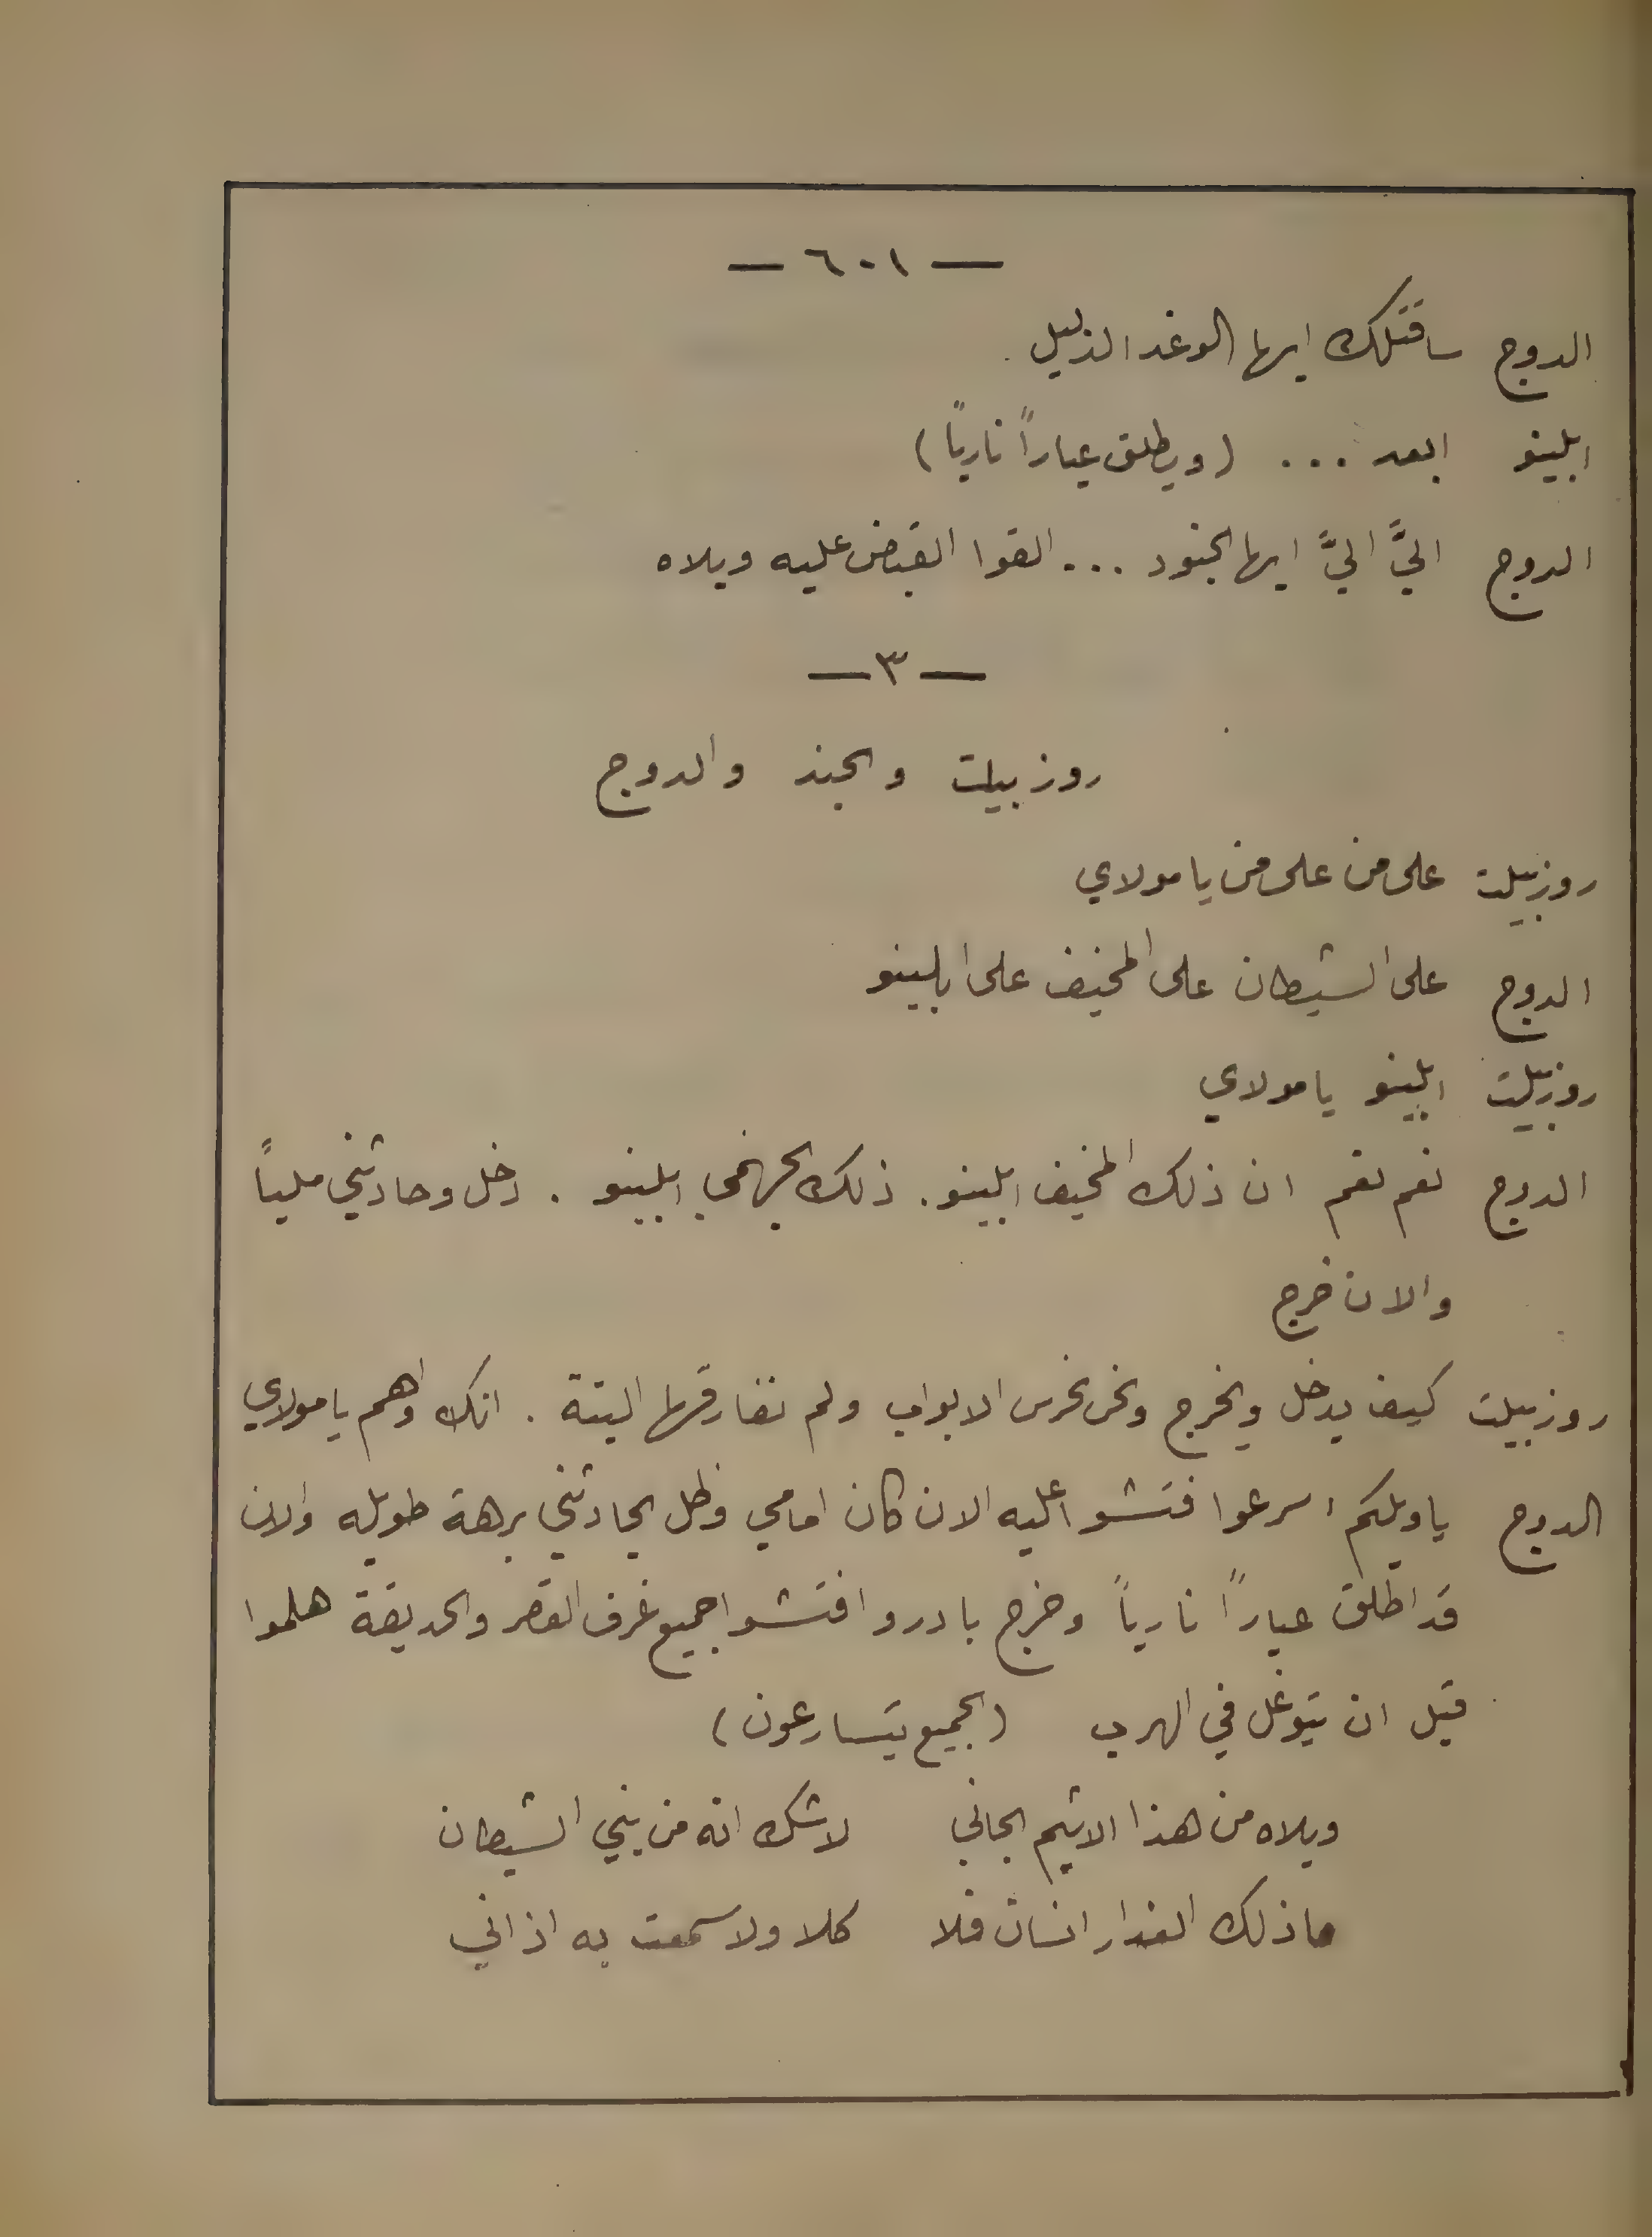 — ٦٠١ —
الدوج ساقتلك ايها الوغد الذليل .
ابلينو ابعد ... (ويطلق عياراً نارياً)
الدوج اليَّ اليَّ ايها الجنود ... القوا القبض عليه ويلاه
— ٣ —
روزبيلت والجند والدوج
روزبيلت على من على من يا مولاي
الدوج على الشيطان على المخيف على ابلينو
روزبيلت ابلينو يا مولاي
الدوج نعم نعم ان ذلك المخيف ابلينو . ذلك الجهنمي ابلينو . دخل وحادثني ملياً
والان خرج
روزبيلت كيف يدخل ويخرج ونحن نحرس الابواب ولم نفارقها البتة . انك واهم يا مولاي
الدوج يا ويلكم اسرعوا فتشوا عليه الان كان امامي وظل يحادثني برهة طويله والان
قد اطلق عياراً نارياً وخرج بادروا فتشوا جميع غرف القصر والحديقة هلموا
قبل ان يتوغل في الهرب (الجميع يتسارعون)
ويلاه من هذا الاثيم الجاني لا شك انه من بني الشيطان
ما ذلك الغدار انسان فلا كلا ولا سمعت به اذاني